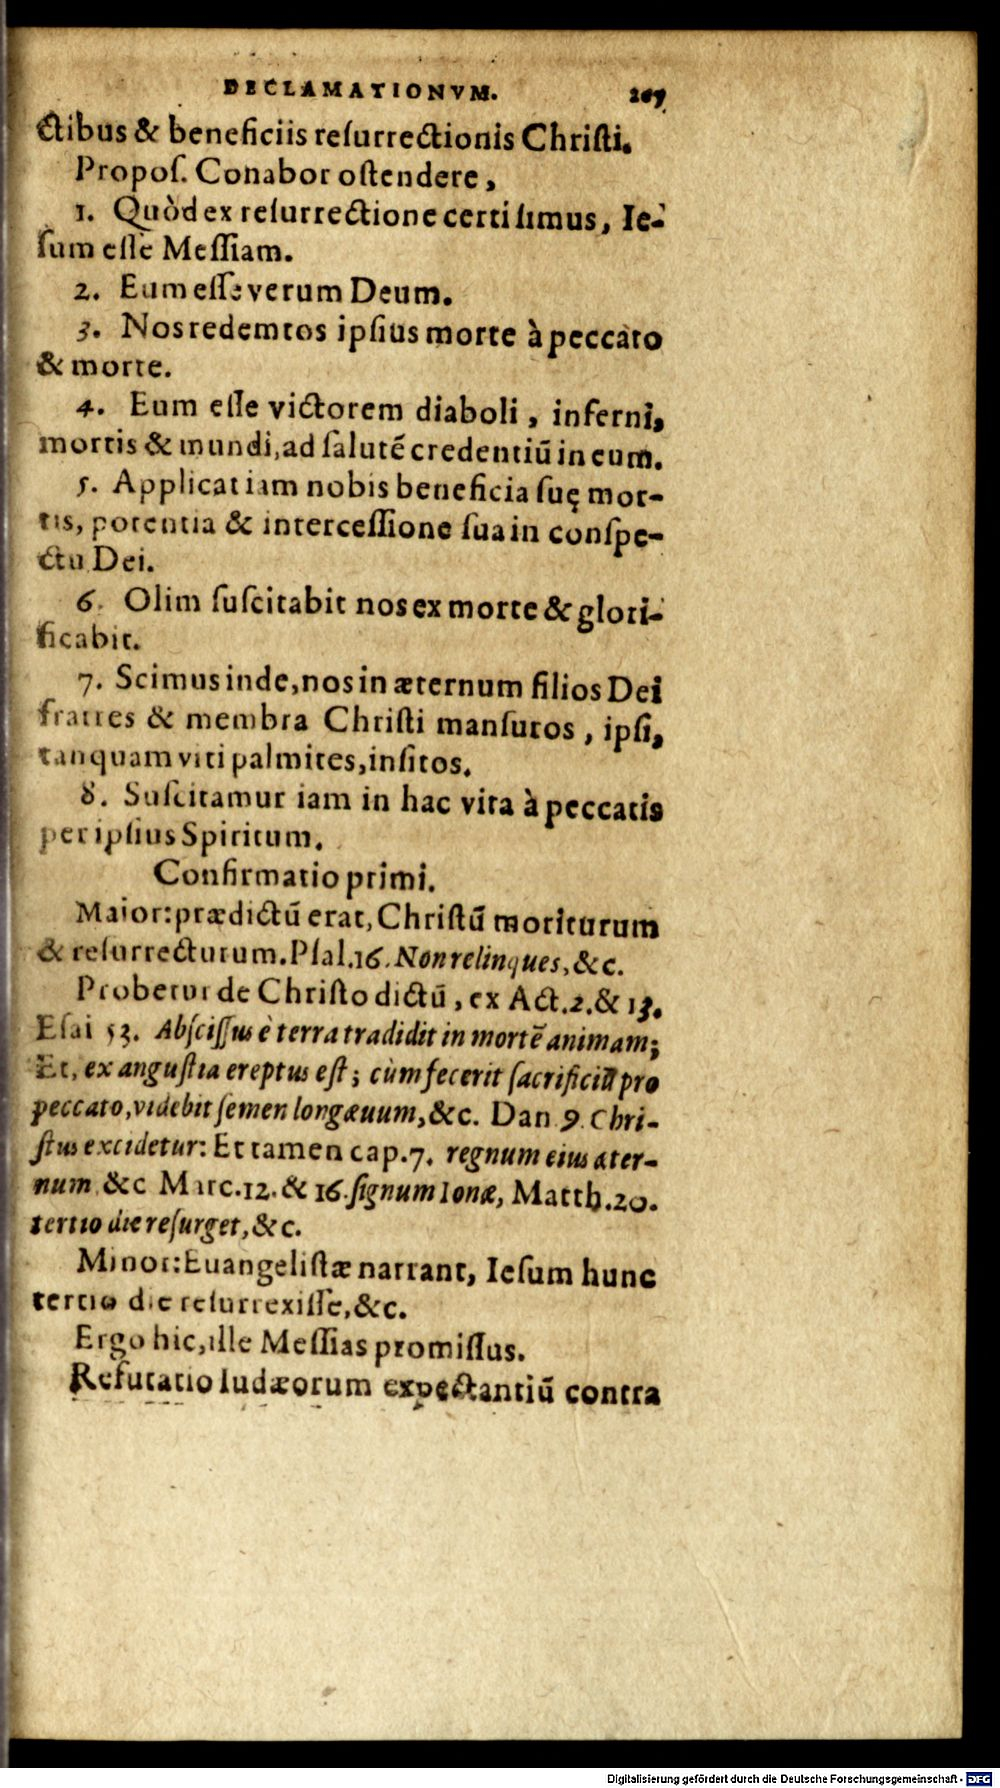 DECLAMATIONVM. 207
ctibus & beneficiis reſurrectionis Chriſti.
Propoſ. Conabor oſtendere,
1. Quòd ex reſurrectione certi ſimus, Ie-
ſum eſſe Meſſiam.
2. Eum eſſe verum Deum.
3. Nos redemtos ipſius morte à peccato
& morte.
4. Eum eſſe victorem diaboli, inferni,
mortis & mundi, ad ſalutē credentiū in eum.
5. Applicat iam nobis beneficia ſuę mor-
tis, potentia & interceſſione ſua in conſpe-
ctu Dei.
6. Olim ſuſcitabit nos ex morte & glori-
ficabit.
7. Scimus inde, nos in æternum filios Dei
fratres & membra Chriſti manſuros, ipſi,
tanquam viti palmites, inſitos.
8. Suſcitamur iam in hac vita à peccatis
per ipſius Spiritum.
Confirmatio primi.
Maior: prædictū erat, Chriſtū moriturum
& reſurrecturum. Pſal. 16. Non relinques, &c.
Probetur de Chriſto dictū, ex Act. 2. & 13.
Eſai 53. Abſciſſus è terra tradidit in mortē animam;
Et, ex anguſtia ereptus eſt; cùm fecerit ſacrificiū pro
peccato, videbit ſemen longæuum, &c. Dan 9. Chri-
ſtus excidetur: Et tamen cap. 7. regnum eius æter-
num &c Marc. 12. & 16. ſignum Ionæ, Matth. 20.
tertio die reſurget, &c.
Minor: Euangeliſtæ narrant, Ieſum hunc
tertio die reſurrexiſſe, &c.
Ergo hic, ille Meſſias promiſſus.
Refutatio Iudæorum expectantiū contra
Digitalisierung gefördert durch die Deutsche Forschungsgemeinschaft - DFG